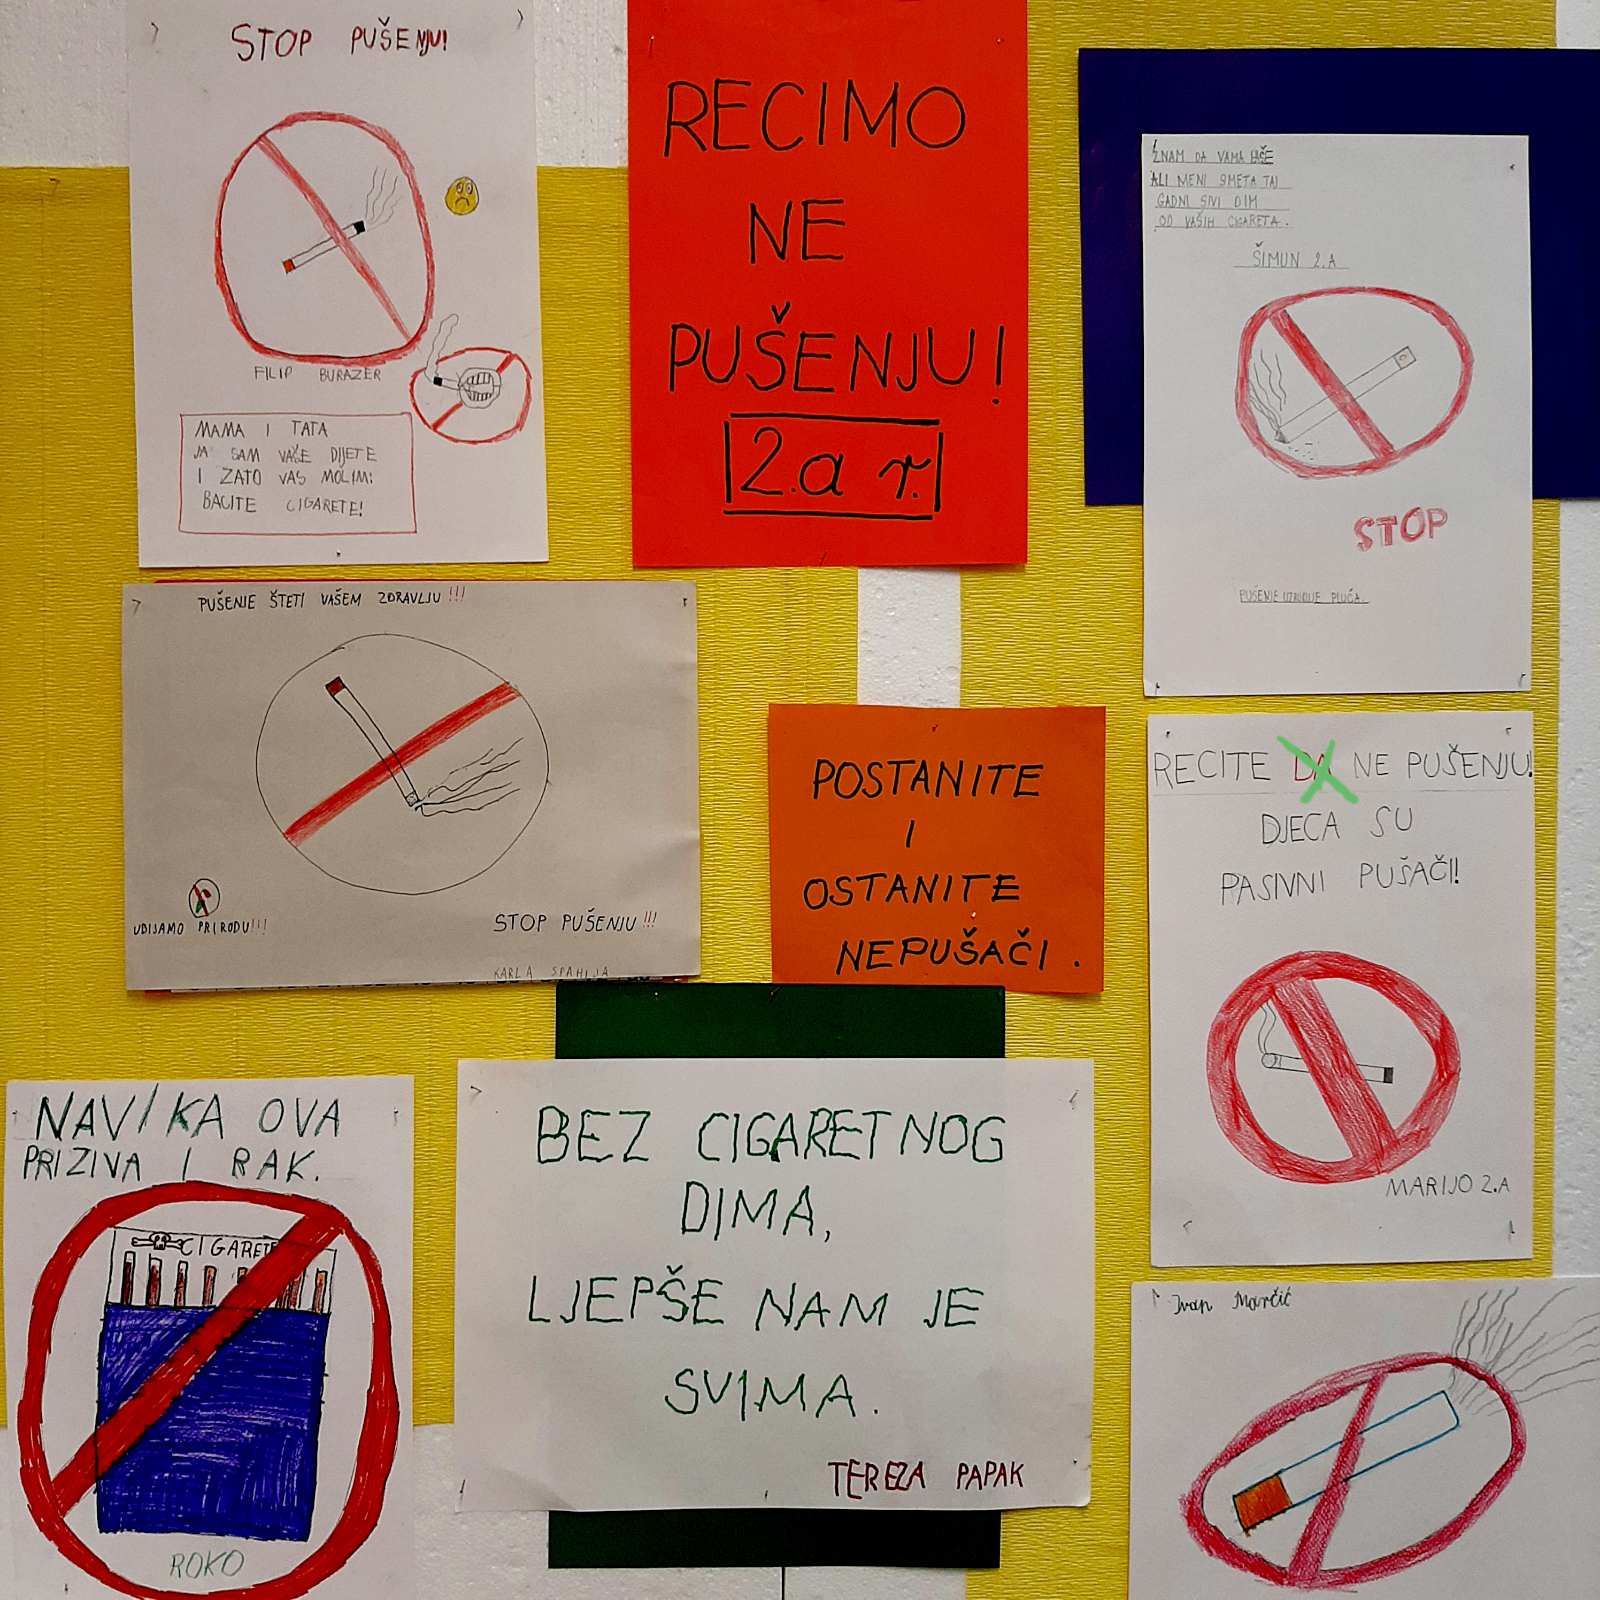 STOP PUŠENJU!
FILIP BURAZER
MAMA I TATA
JA SAM VAŠE DIJETE
I ZATO VAS MOLIM:
BACITE CIGARETE!
RECIMO
NE
PUŠENJU!
2.a r.
ZNAM DA VAMA PAŠE
ALI MENI SMETA TAJ
GADNI SIVI DIM
OD VAŠIH CIGARETA.
ŠIMUN 2.A
STOP
PUŠENJE UZROKUJE PLUĆA.
PUŠENJE ŠTETI VAŠEM ZDRAVLJU!!!
UBIJAMO PRIRODU!!!
STOP PUŠENJU!!!
KARLA SPAHIJA
POSTANITE
I
OSTANITE
NEPUŠAČI.
RECITE DA NE PUŠENJU!
DJECA SU
PASIVNI PUŠAČI!
MARIJO 2.A
NAVIKA OVA
PRIZIVA I RAK.
CIGARETE
ROKO
BEZ CIGARETNOG
DIMA,
LJEPŠE NAM JE
SVIMA.
TEREZA PAPAK
Ivan Marčić